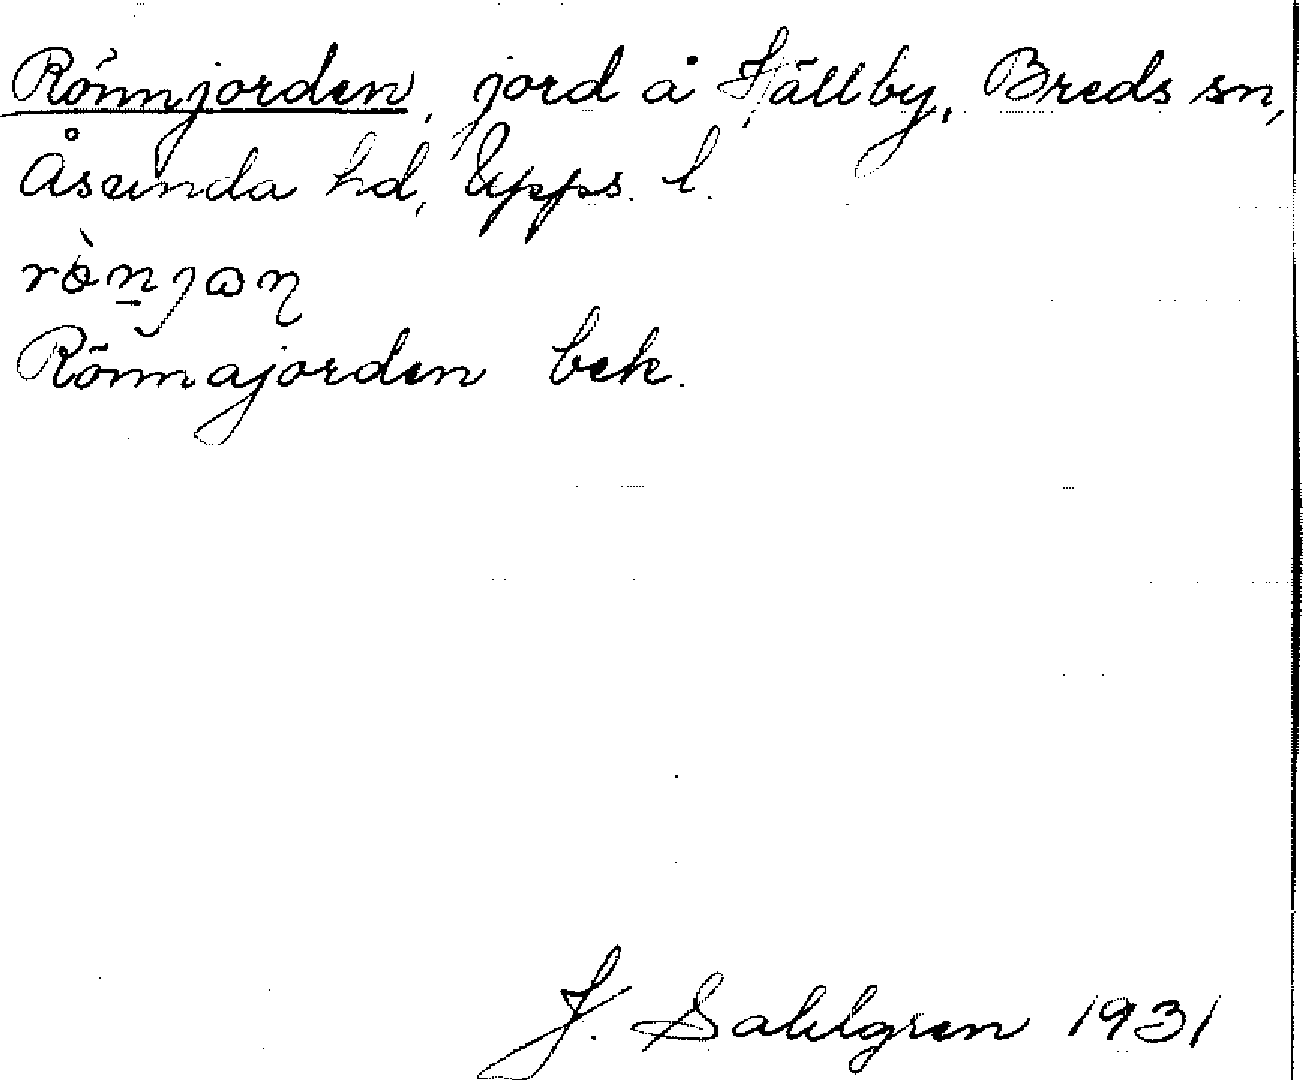 Rönnjorden, jord å Hällby, Breds sn,
Åsunda hd, Upps. l.
Rönnajorden bek.
J. Sahlgren 1931